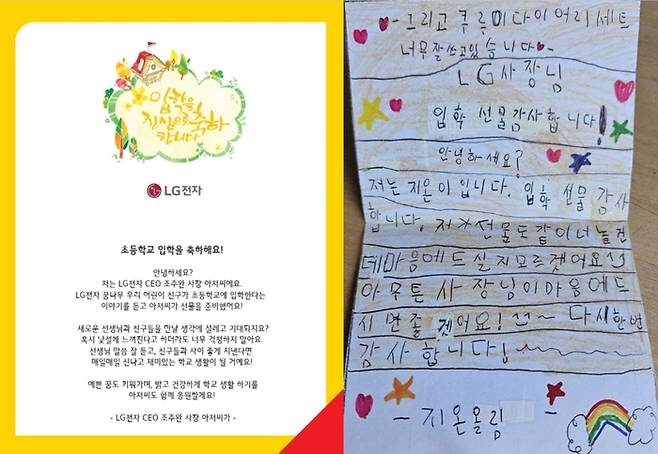 입학을
진심으로 축하
합니다
LG전자
초등학교 입학을 축하해요!
안녕하세요?
저는 LG전자 CEO 조주완 사장 아저씨예요.
LG전자 꿈나무 우리 어린이 친구가 초등학교에 입학한다는
이야기를 듣고 아저씨가 선물을 준비했어요!
새로운 선생님과 친구들을 만날 생각에 설레고 기대되지요?
혹시 낯설게 느껴진다고 하더라도 너무 걱정하지 말아요.
선생님 말씀 잘 듣고, 친구들과 사이 좋게 지낸다면
매일매일 신나고 재미있는 학교 생활이 될 거예요!
예쁜 꿈도 키워가며, 밝고 건강하게 학교 생활 하기를
아저씨도 함께 응원할게요!
- LG전자 CEO 조주완 사장 아저씨가 -
- 그리고 쿠루미다이어리세트
너무잘쓰고있습니다
LG사장님
입학 선물감사합니다!
안녕하세요?
저는 지온이입니다. 입학 선물 감사
합니다. 저 선물도같이너늘건
데마음에드실지모르겟어요
아무튼사장님이마음에드
시면좋겟어요! ~ 다시한번
감사합니다!
- 지온올림 -